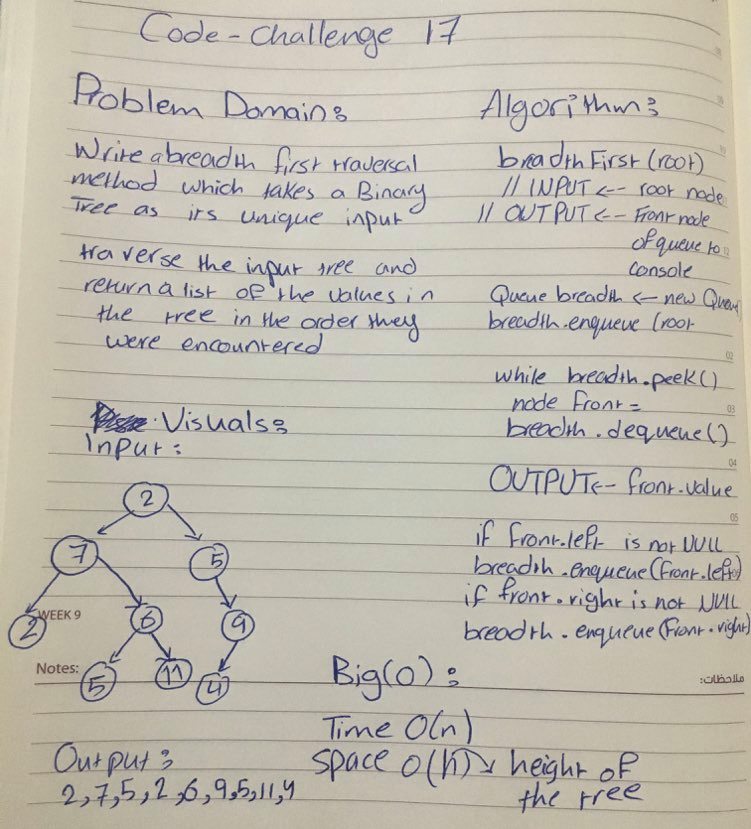 Code-challenge 17
Problem Domain:
Write a breadth first traversal
method which takes a Binary
Tree as its unique input
traverse the input tree and
return a list of the values in
the tree in the order they
were encountered
Visuals:
Input:
2
7
5
2
6
9
5
11
4
WEEK 9
Notes:
Output:
2,7,5,2,6,9,5,11,4
Algorithm:
breadth First (root)
// INPUT <-- root node
// OUTPUT <-- Front node
of queue to
console
Queue breadth <-- new Queue
breadth.enqueue (root
while breadth.peek()
node front =
breadth.dequeue()
OUTPUT <-- front.value
if front.left is not NULL
breadth.enqueue(front.left)
if front.right is not NULL
breadth.enqueue(front.right)
Big(O):
Time O(n)
space O(h) → height of
the tree
ملاحظات:
02
03
04
05